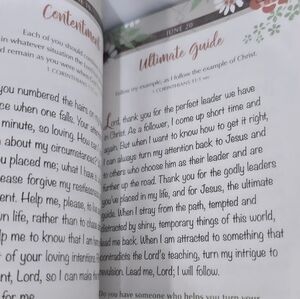 Contentment
Each of you should
in whatever situation the
and remain as you were when
1 CORINTHIANS
you numbered the hairs on my
ce when one falls. Your
minute, so loving. How can I
about my circumstances?
ou placed me; what I have is
ease forgive my restlessness
tent. Help me, please, to
wn life, rather than to
lp me to know that I am
t of your loving intentions
ent, Lord, so I can make the
JUNE 20
Ultimate Guide
Follow my example, as I follow the example of Christ.
1 CORINTHIANS 11:1 NIV
Lord, thank you for the perfect leader we have
in Christ. As a follower, I come up short time and
again. But when I want to know how to get it right,
I can always turn my attention back to Jesus and
to others who choose him as their leader and are
further up the road. Thank you for the godly leaders
you have placed in my life, and for Jesus, the ultimate
guide. When I stray from the path, tempted and
distracted by shiny, temporary things of this world,
lead me back. When I am attracted to something that
contradicts the Lord's teaching, turn my intrigue to
revulsion. Lead me, Lord; I will follow.
Do you have someone who helps you turn your